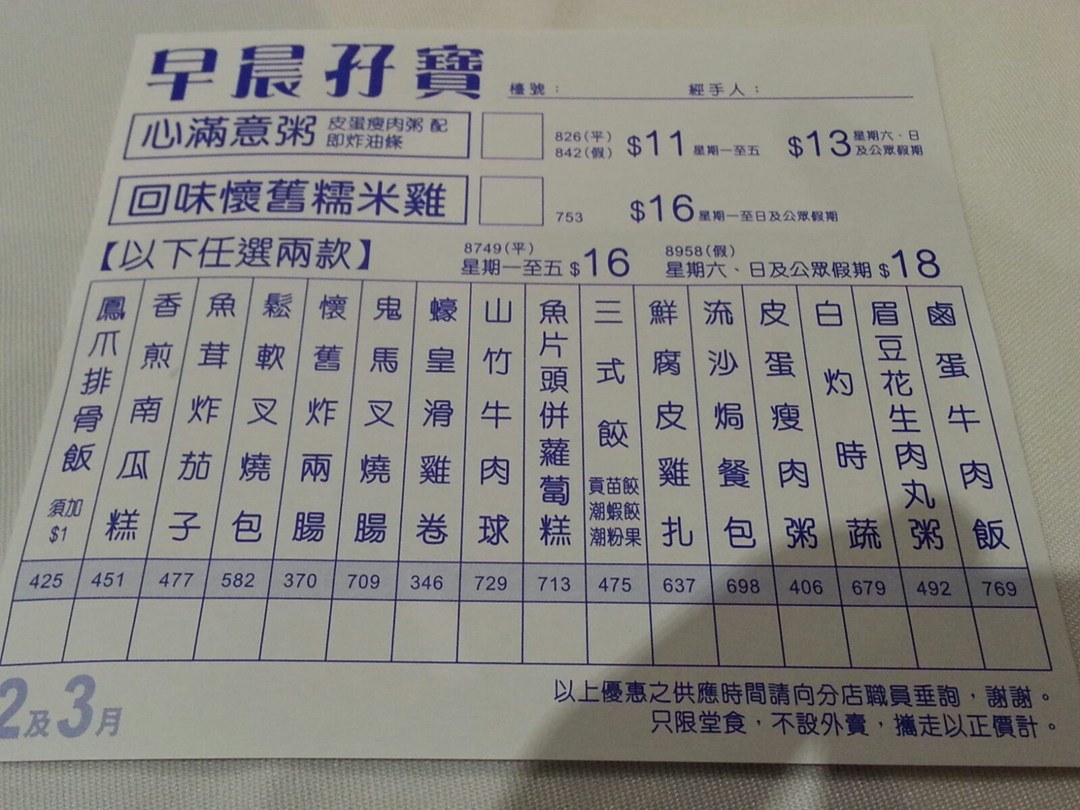 早晨孖寶
檯號： 經手人：
心滿意粥 皮蛋瘦肉粥 配
即炸油條
826(平) $11 星期一至五 $13 星期六、日
842(假) 及公眾假期
回味懷舊糯米雞 753 $16 星期一至日及公眾假期
【以下任選兩款】
8749(平) 8958(假)
星期一至五 $16 星期六、日及公眾假期 $18
鳳爪排骨飯 須加$1
香煎南瓜糕
魚茸炸茄子
鬆軟叉燒包
懷舊炸兩腸
鬼馬叉燒腸
蠔皇滑雞卷
山竹牛肉球
魚片頭併蘿蔔糕
三式餃 貢苗餃 潮蝦餃 潮粉果
鮮腐皮雞扎
流沙焗餐包
皮蛋瘦肉粥
白灼時蔬
眉豆花生肉丸粥
鹵蛋牛肉飯
425 451 477 582 370 709 346 729 713 475 637 698 406 679 492 769
2及3月
以上優惠之供應時間請向分店職員垂詢，謝謝。
只限堂食，不設外賣，攜走以正價計。